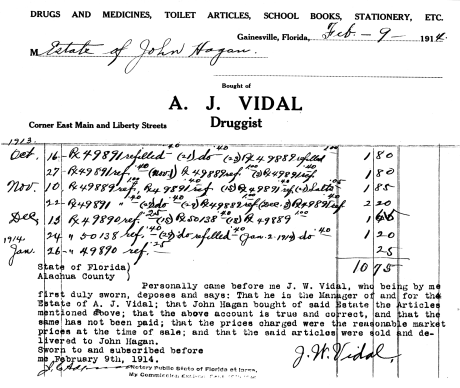 DRUGS AND MEDICINES, TOILET ARTICLES, SCHOOL BOOKS, STATIONERY, ETC.
Gainesville, Florida, Feb - 9 - 1914
M Estate of John Hagan.
Bought of
A. J. VIDAL
Druggist
Corner East Main and Liberty Streets
1913.
Oct. 16 - Rx 49891 refilled .40 (21) do .40 (23) Rx 49889 refilled 1 80
27 - Rx 49891 ref. .40 Rx 49889 ref 1 20
Nov. 10 Rx 49889 ref., Rx 49891 ref 1 85
22 - Rx 49891 2 20
Dec. 13 Rx 49890 ref. .25 Rx 50138 .40 Rx 49889
1914 24 " 50138 ref. .40 do refilled .40 (Jan. 2. 1914) do .40 1 20
Jan. 26 " 49890 ref. .25 25
10 75
State of Florida)
Alachua County )
Personally came before me J. W. Vidal, who being by me
first duly sworn, deposes and says: That he is the Manager of and for the
Estate of A. J. Vidal; that John Hagan bought of said Estate the Articles
mentioned above; that the above account is true and correct, and that the
same has not been paid; that the prices charged were the reasonable market
prices at the time of sale; and that the said articles were sold and de-
livered to John Hagan.
Sworn to and subscribed before
me February 9th, 1914.
J. W. Vidal
Notary Public State of Florida at large,
My Commission Expires